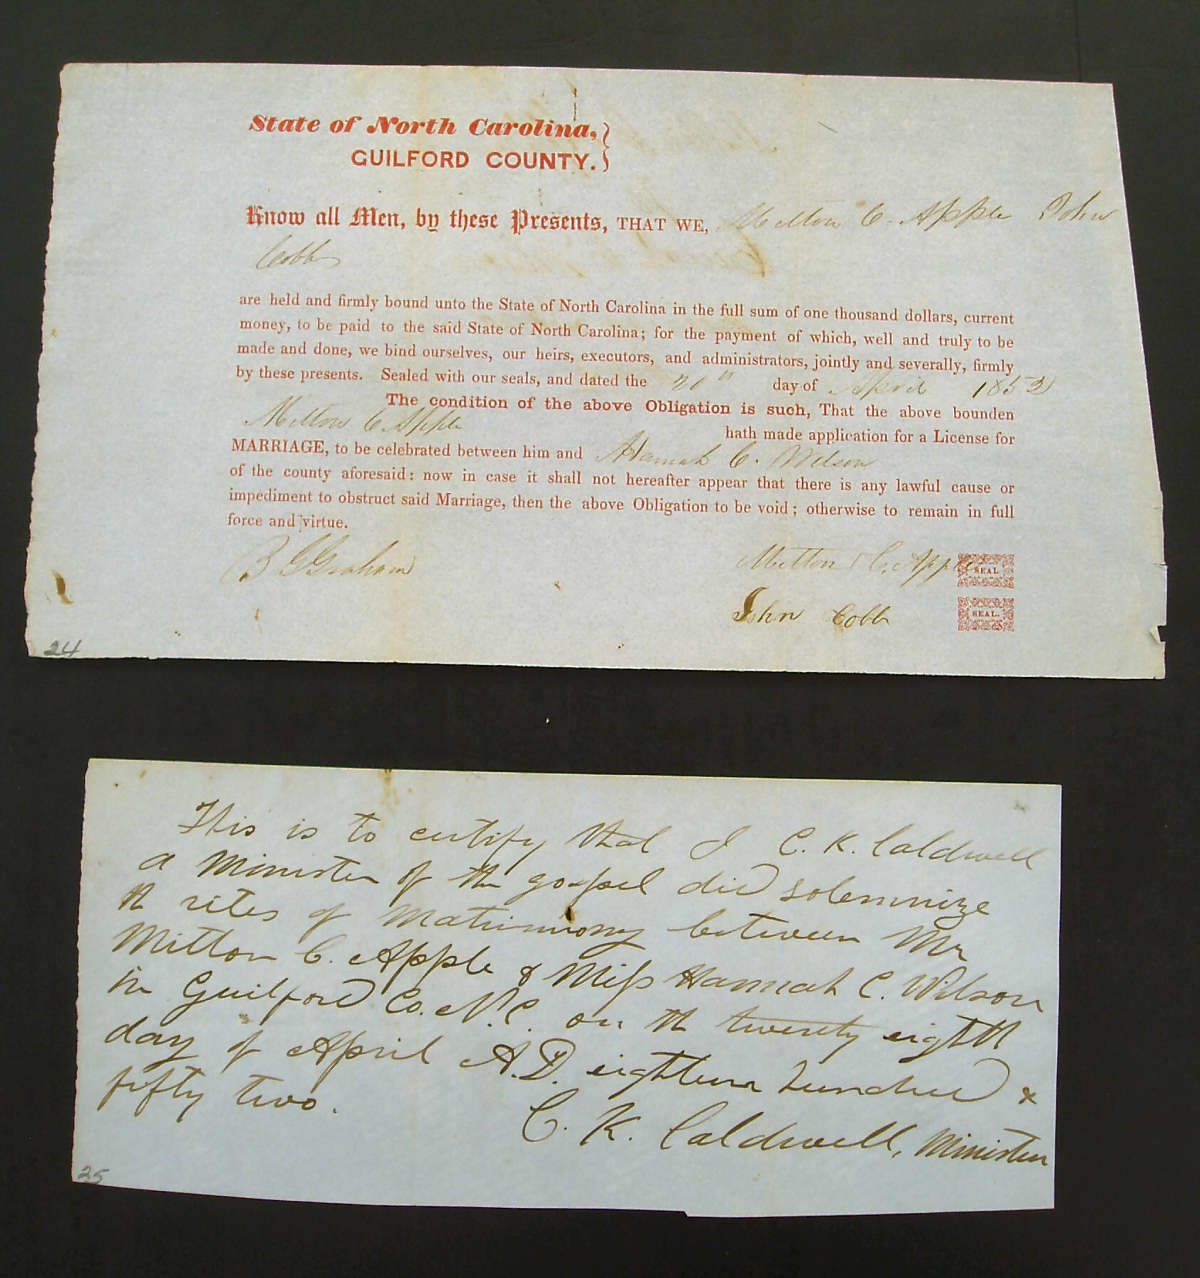 State of North Carolina,
GUILFORD COUNTY.
Know all Men, by these Presents, THAT WE, Milton C. Apple John
Cobb
are held and firmly bound unto the State of North Carolina in the full sum of one thousand dollars, current
money, to be paid to the said State of North Carolina; for the payment of which, well and truly to be
made and done, we bind ourselves, our heirs, executors, and administrators, jointly and severally, firmly
by these presents. Sealed with our seals, and dated the 20th day of April 1852
The condition of the above Obligation is such, That the above bounden
Milton C Apple hath made application for a License for
MARRIAGE, to be celebrated between him and Hannah C. Wilson
of the county aforesaid: now in case it shall not hereafter appear that there is any lawful cause or
impediment to obstruct said Marriage, then the above Obligation to be void; otherwise to remain in full
force and virtue.
B G Graham Milton C. Apple SEAL.
John Cobb SEAL.
24
This is to certify that I C. K. Caldwell
a Minister of the gospel did solemnize
th rites of Matrimony between Mr
Milton C. Apple & Miss Hannah C. Wilson
in Guilford Co. N.C. on th twenty eighth
day of April A.D. eighteen hundred &
fifty two.
C. K. Caldwell, Minister
25